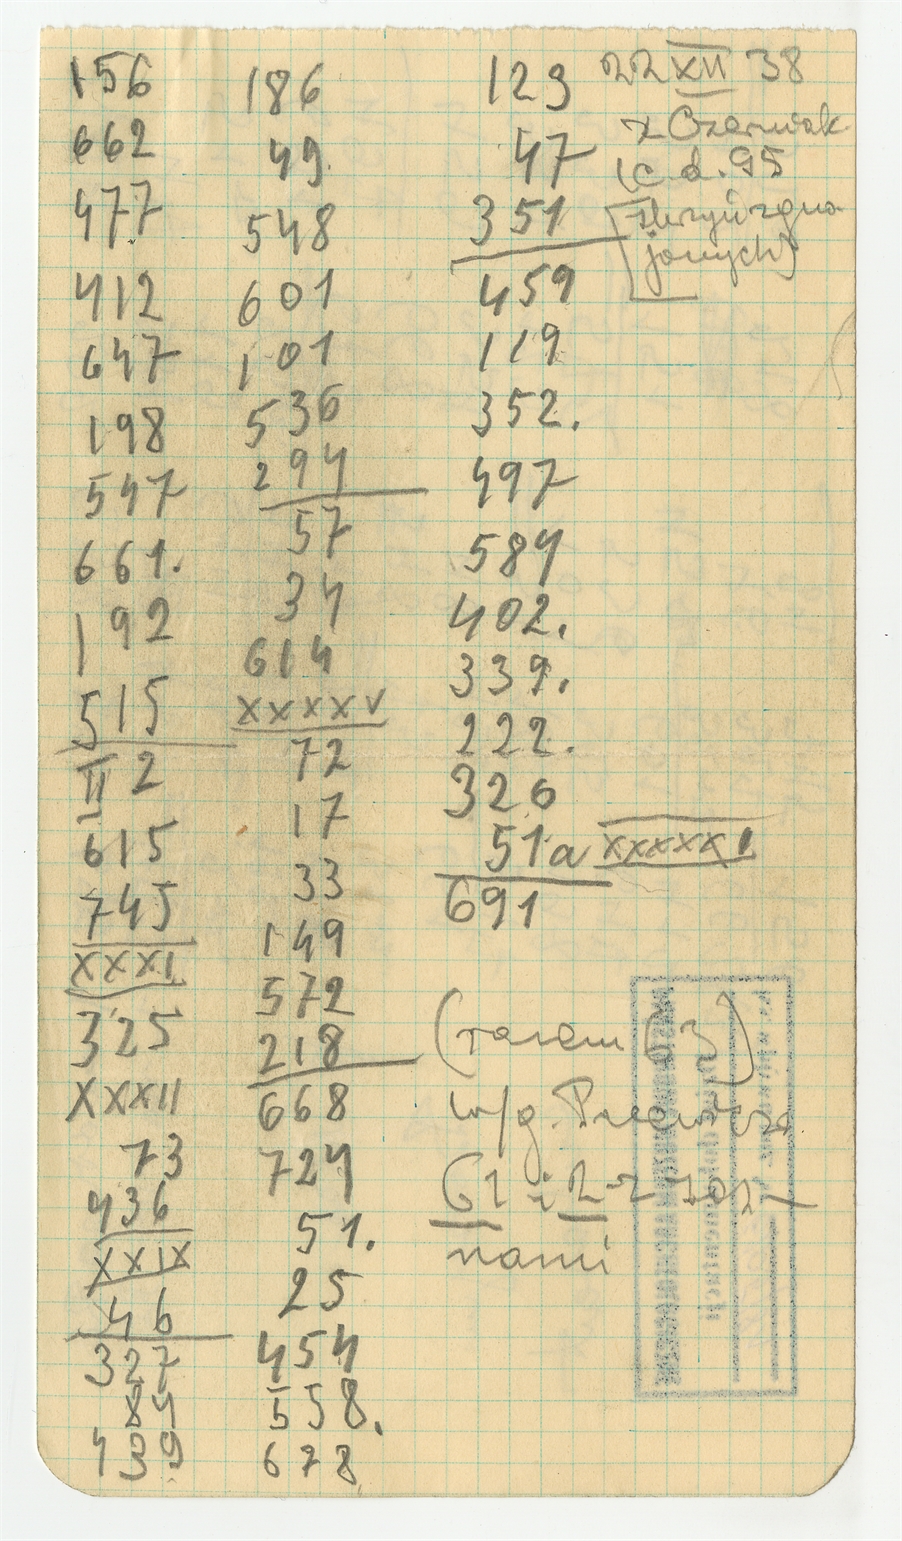 156
662
477
412
647
198
547
661.
192
515
II 2
615
745
XXXI
325
XXXII
73
436
XXIX
46
327
84
439
186
49.
548
601
101
536
294
57
34
614
XXXXV
72
17
33
149
572
218
668
724
51.
25
454
558.
678
129
47
351
459
119
352.
497
584
402.
339.
222.
326
51a XXXXXI
691
22 XII 38
z Czerwiak
(c. d. 95
(razem 63)
w/g.
61 i 2
nami